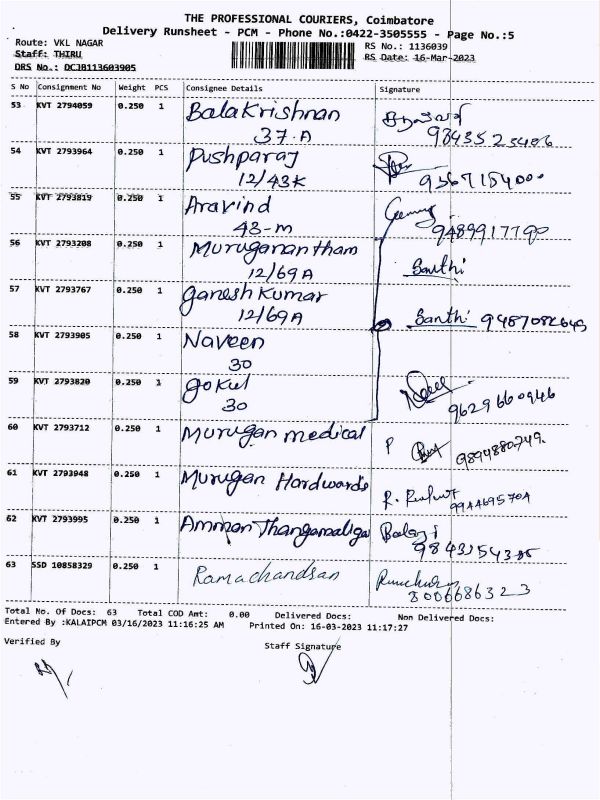 THE PROFESSIONAL COURIERS, Coimbatore
Delivery Runsheet - PCM - Phone No.:0422-3505555 - Page No.:5
Route: VKL NAGAR
RS No.: 1136039
Staff: THIRU
RS Date: 16-Mar-2023
DRS No.: DCJB113603905
S No Consignment No Weight PCS Consignee Details Signature
53 KVT 2794059 0.250 1 Balakrishnan
37.A
54 KVT 2793964 0.250 1 Pushparaj
12/43K
55 KVT 2793819 0.250 1 Aravind
43-m 9489917790
56 KVT 2793208 0.250 1 Muruganantham
12/69A Santhi
57 KVT 2793767 0.250 1 Ganesh Kumar
12/69A Santhi 9487082649
58 KVT 2793905 0.250 1 Naveen
30
59 KVT 2793820 0.250 1 Gokul
30 9629660946
60 KVT 2793712 0.250 1 Murugan medical
P 9894880749.
61 KVT 2793948 0.250 1 Murugan Hardwards
9944695704
62 KVT 2793995 0.250 1 Amman Thangamaliga Balaji
63 SSD 10858329 0.250 1 Ramachandsan
8006686323
Total No. Of Docs: 63 Total COD Amt: 0.00 Delivered Docs: Non Delivered Docs:
Entered By :KALAIPCM 03/16/2023 11:16:25 AM Printed On: 16-03-2023 11:17:27
Verified By
Staff Signature